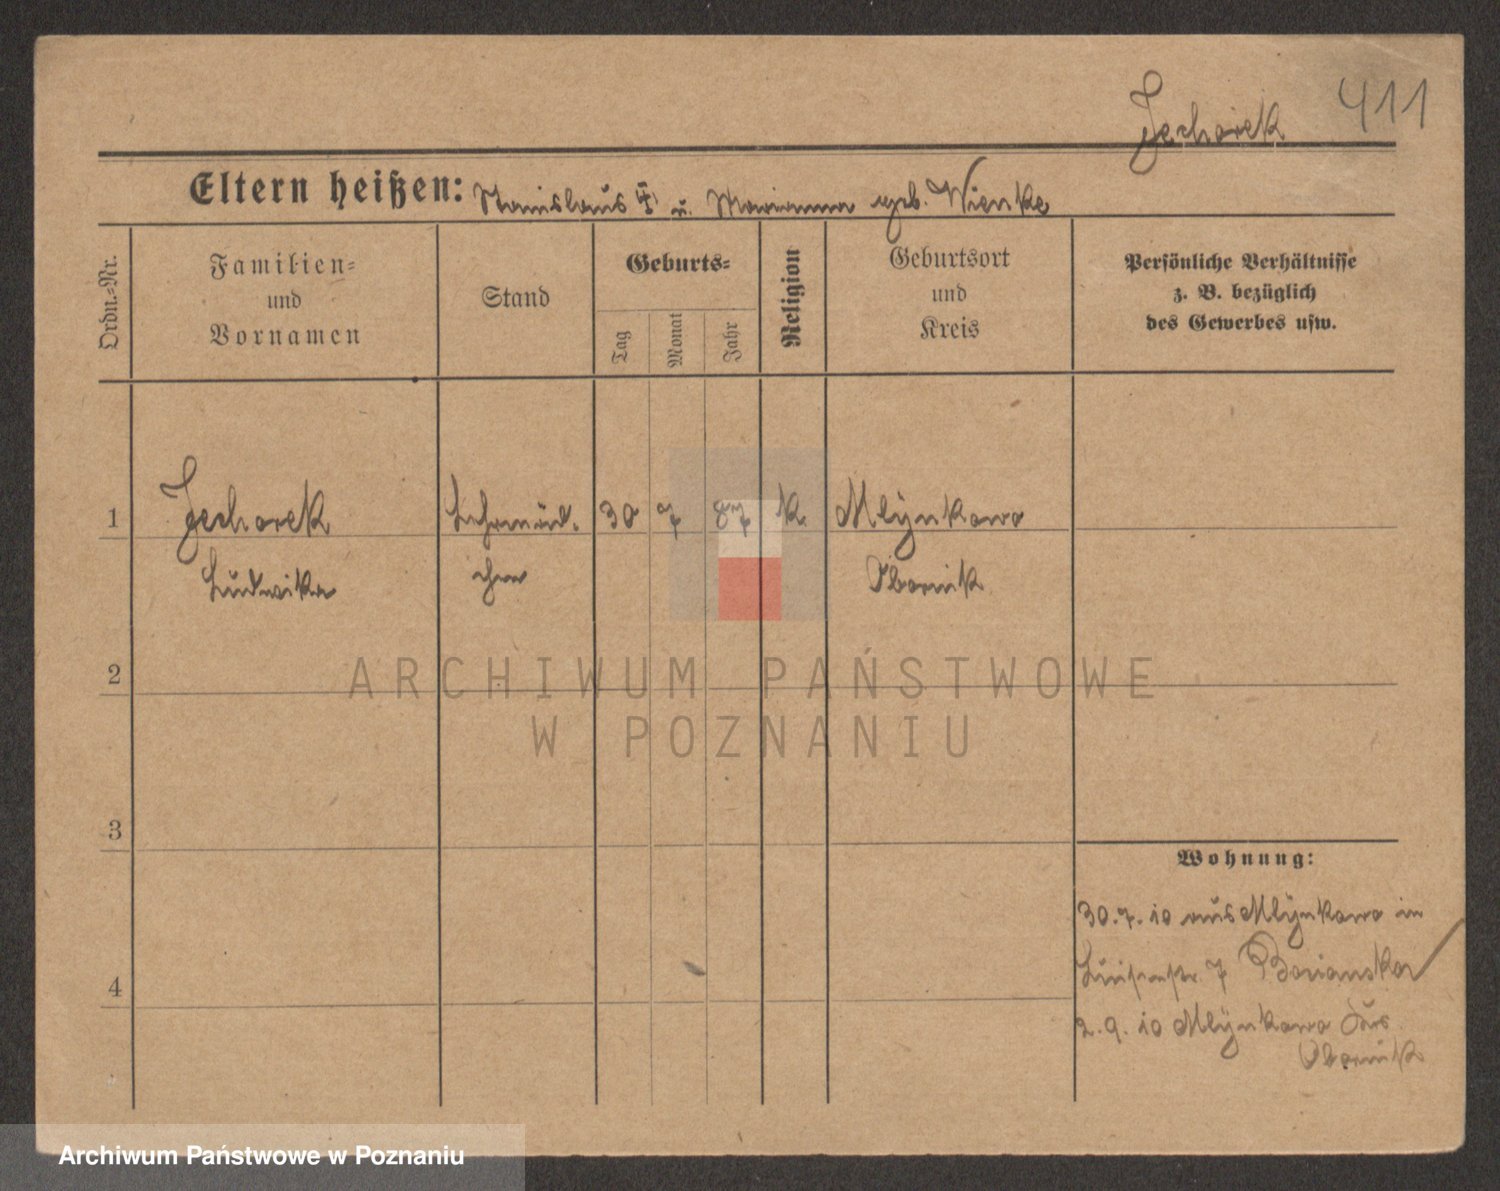 411
Jechorek
Eltern heißen: Stanislaus u. Marianna geb. Wienke
Ordn.-Nr.
Familien-
und
Vornamen
Stand
Geburts-
Tag
Monat
Jahr
Religion
Geburtsort
und
Kreis
Persönliche Verhältnisse
z. B. bezüglich
des Gewerbes usw.
1 Jechorek Lehrmäd. 30 7 87 k. Mlynkowo
Ludwika chen Obornik
2
ARCHIWUM PAŃSTWOWE
W POZNANIU
3
Wohnung:
30.7.10 aus Mlynkowo in
Luisenstr. 7
4
2.9.10 Mlynkowo Krs.
Obornik
Archiwum Państwowe w Poznaniu